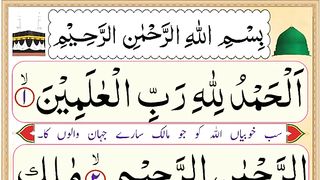 بِسْمِ اللهِ الرَّحْمٰنِ الرَّحِيْمِ
اَلْحَمْدُ لِلّٰهِ رَبِّ الْعٰلَمِيْنَ ۙ﴿۱﴾
سب خوبیاں اللہ کو جو مالک سارے جہان والوں کا۔
الرَّحْمٰنِ الرَّحِيْمِ ۙ﴿۲﴾ مٰلِكِ